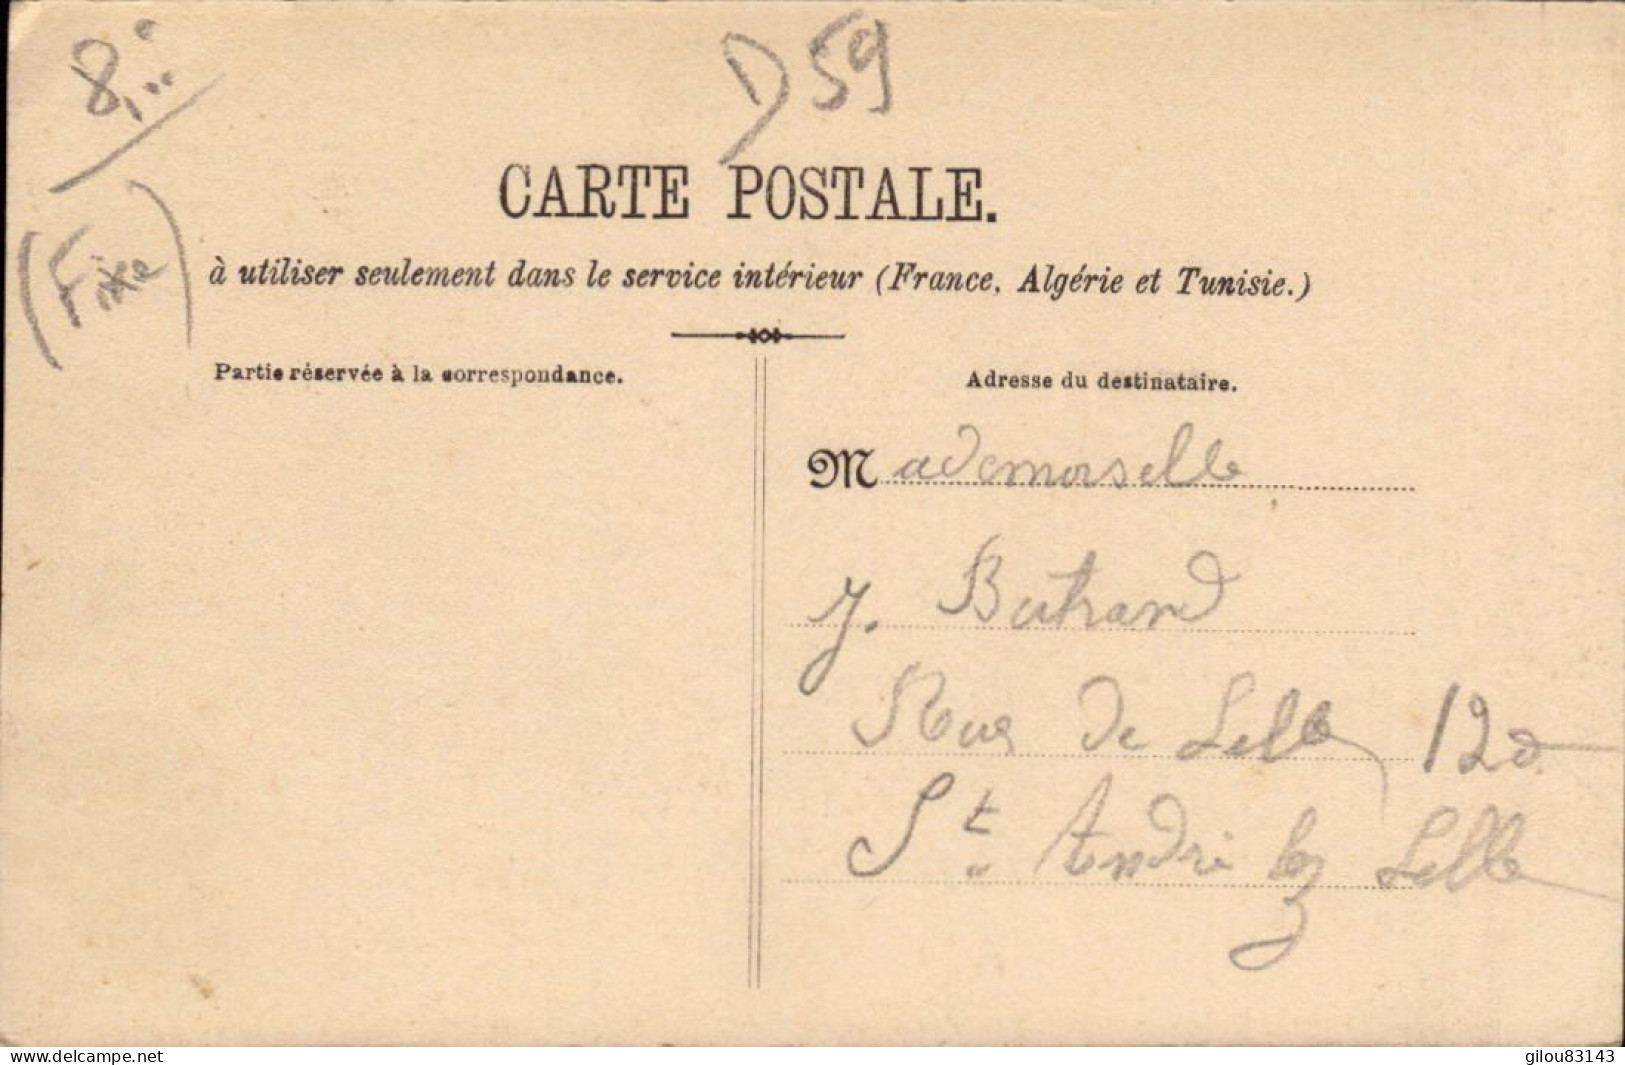 8,..
D59
(Fixe)
CARTE POSTALE.
à utiliser seulement dans le service intérieur (France, Algérie et Tunisie.)
Partie réservée à la correspondance.
Adresse du destinataire.
Mademoiselle
J. Bertrand
Rue de Lille 120
St. André lez Lille
www.delcampe.net
gilou83143